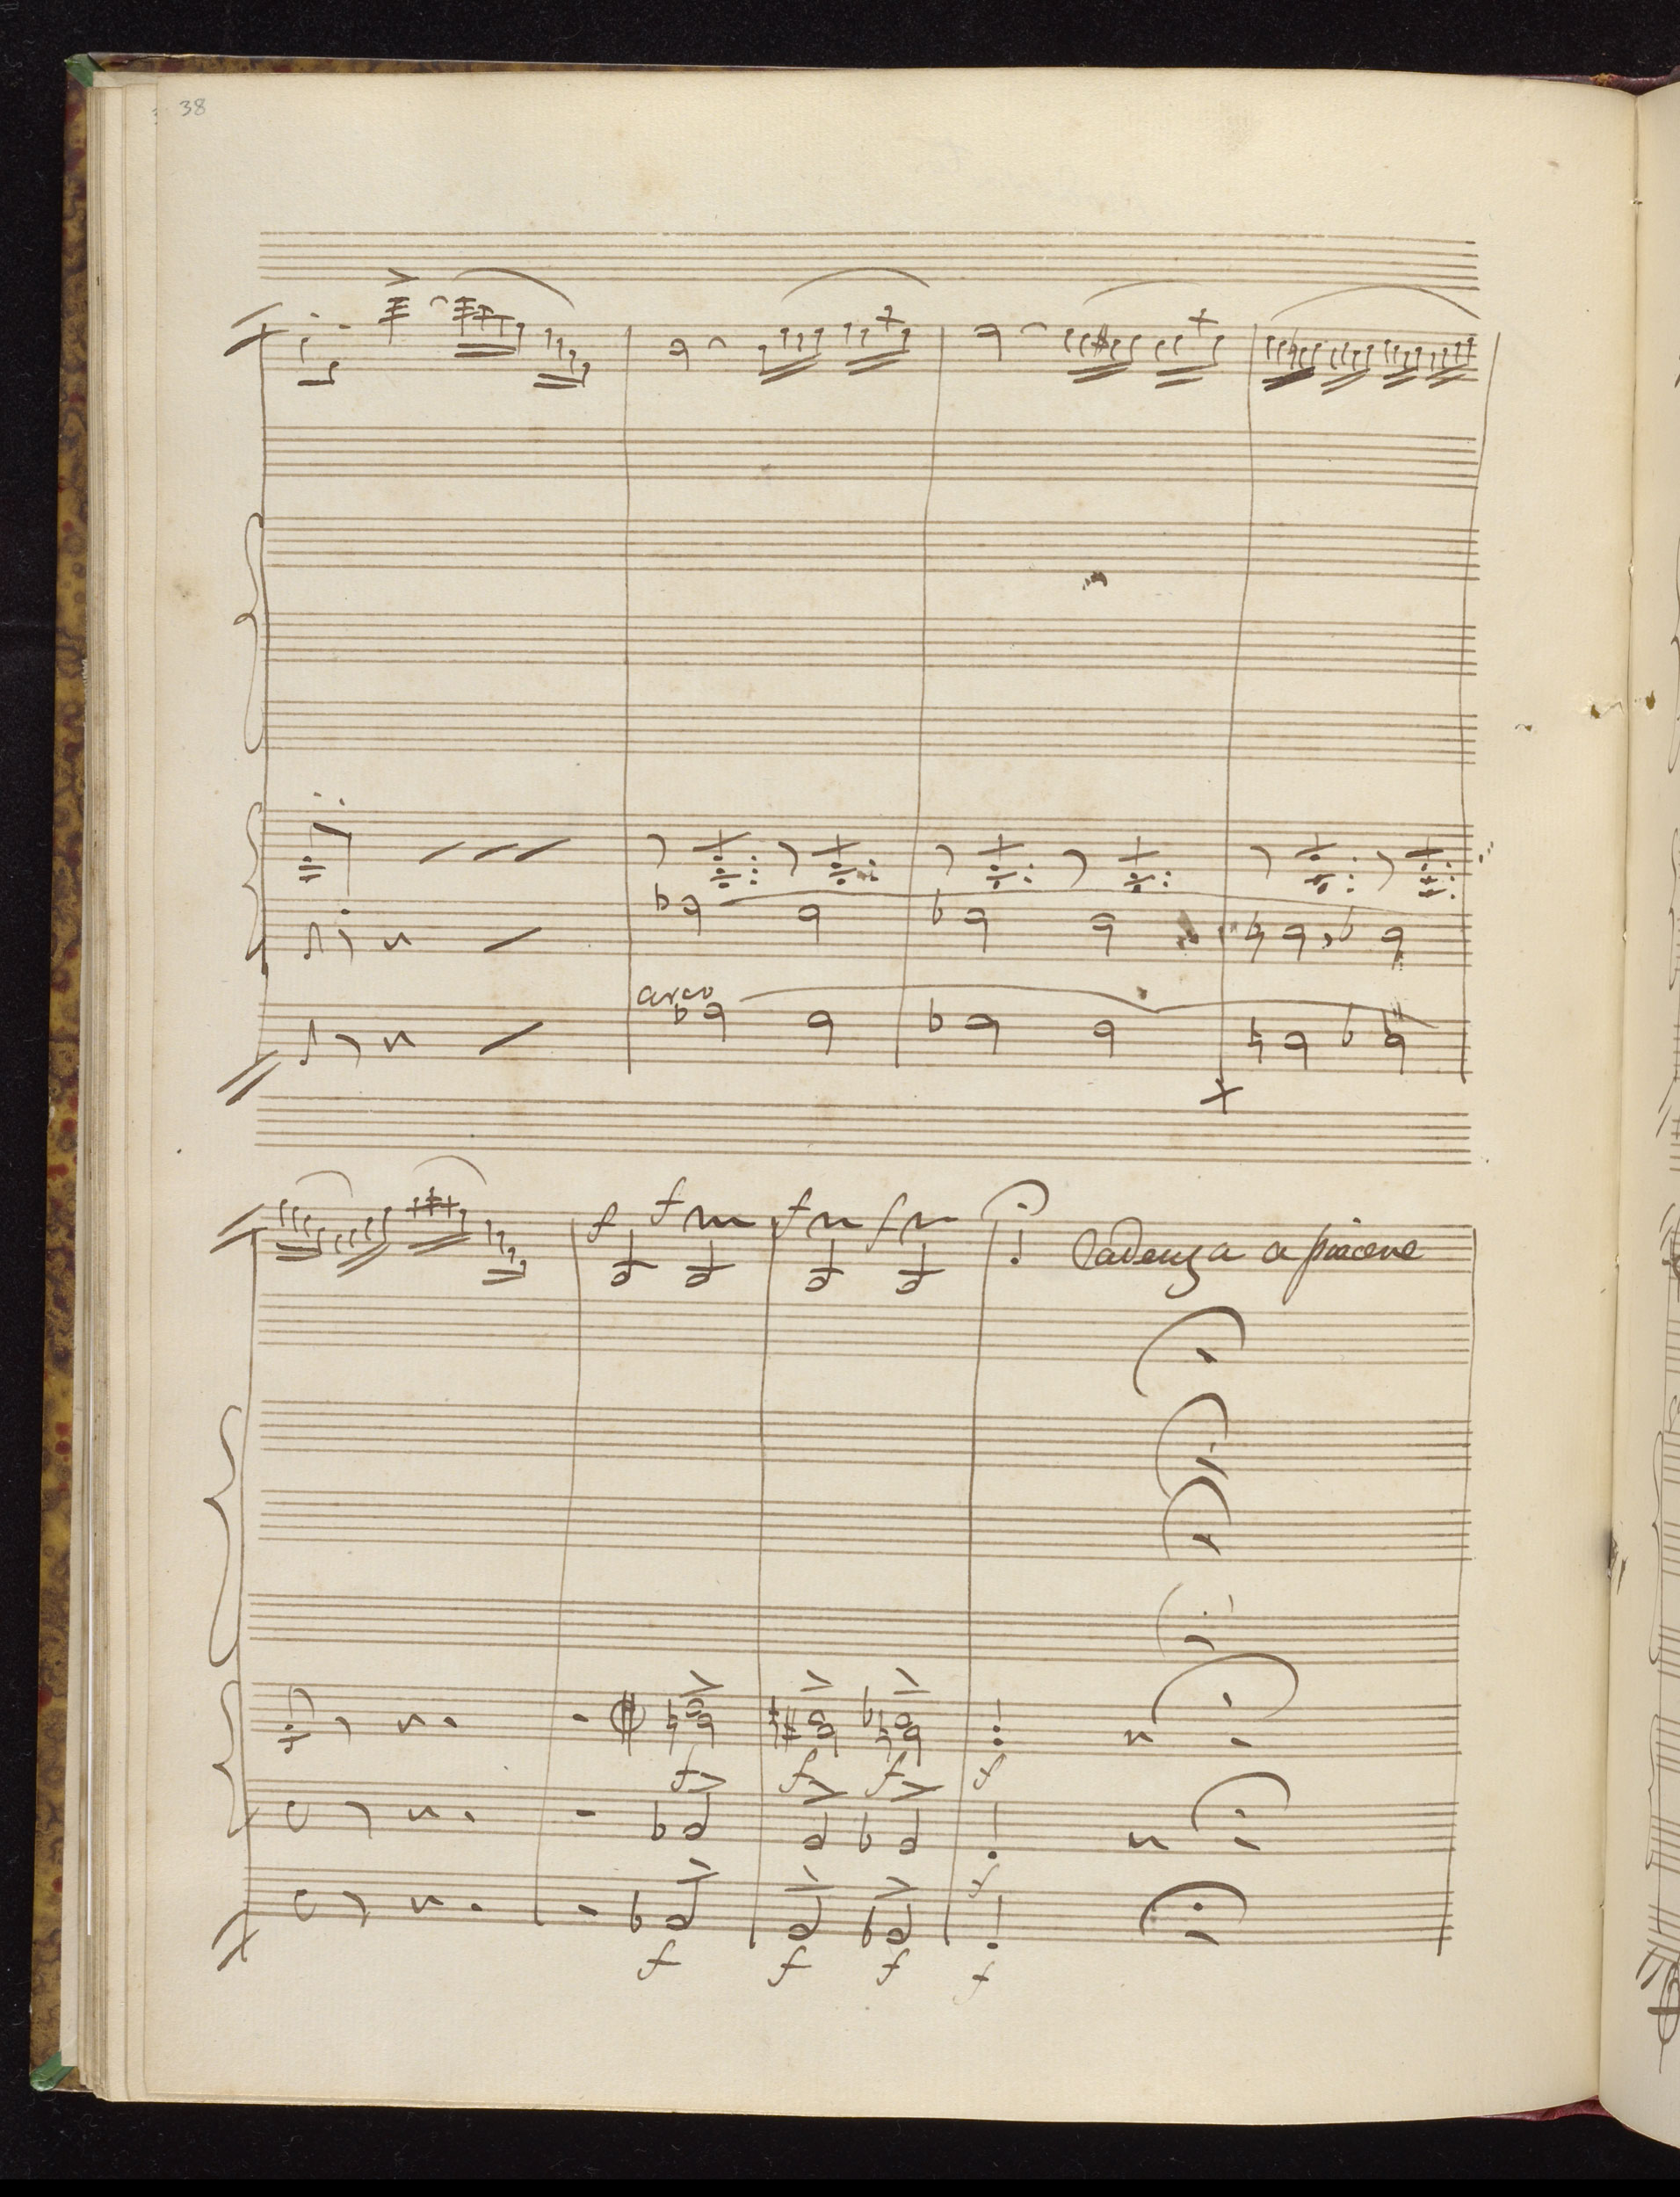 38
arco
f f f f
Cadenza a piacere
f f f f
f
f f f f